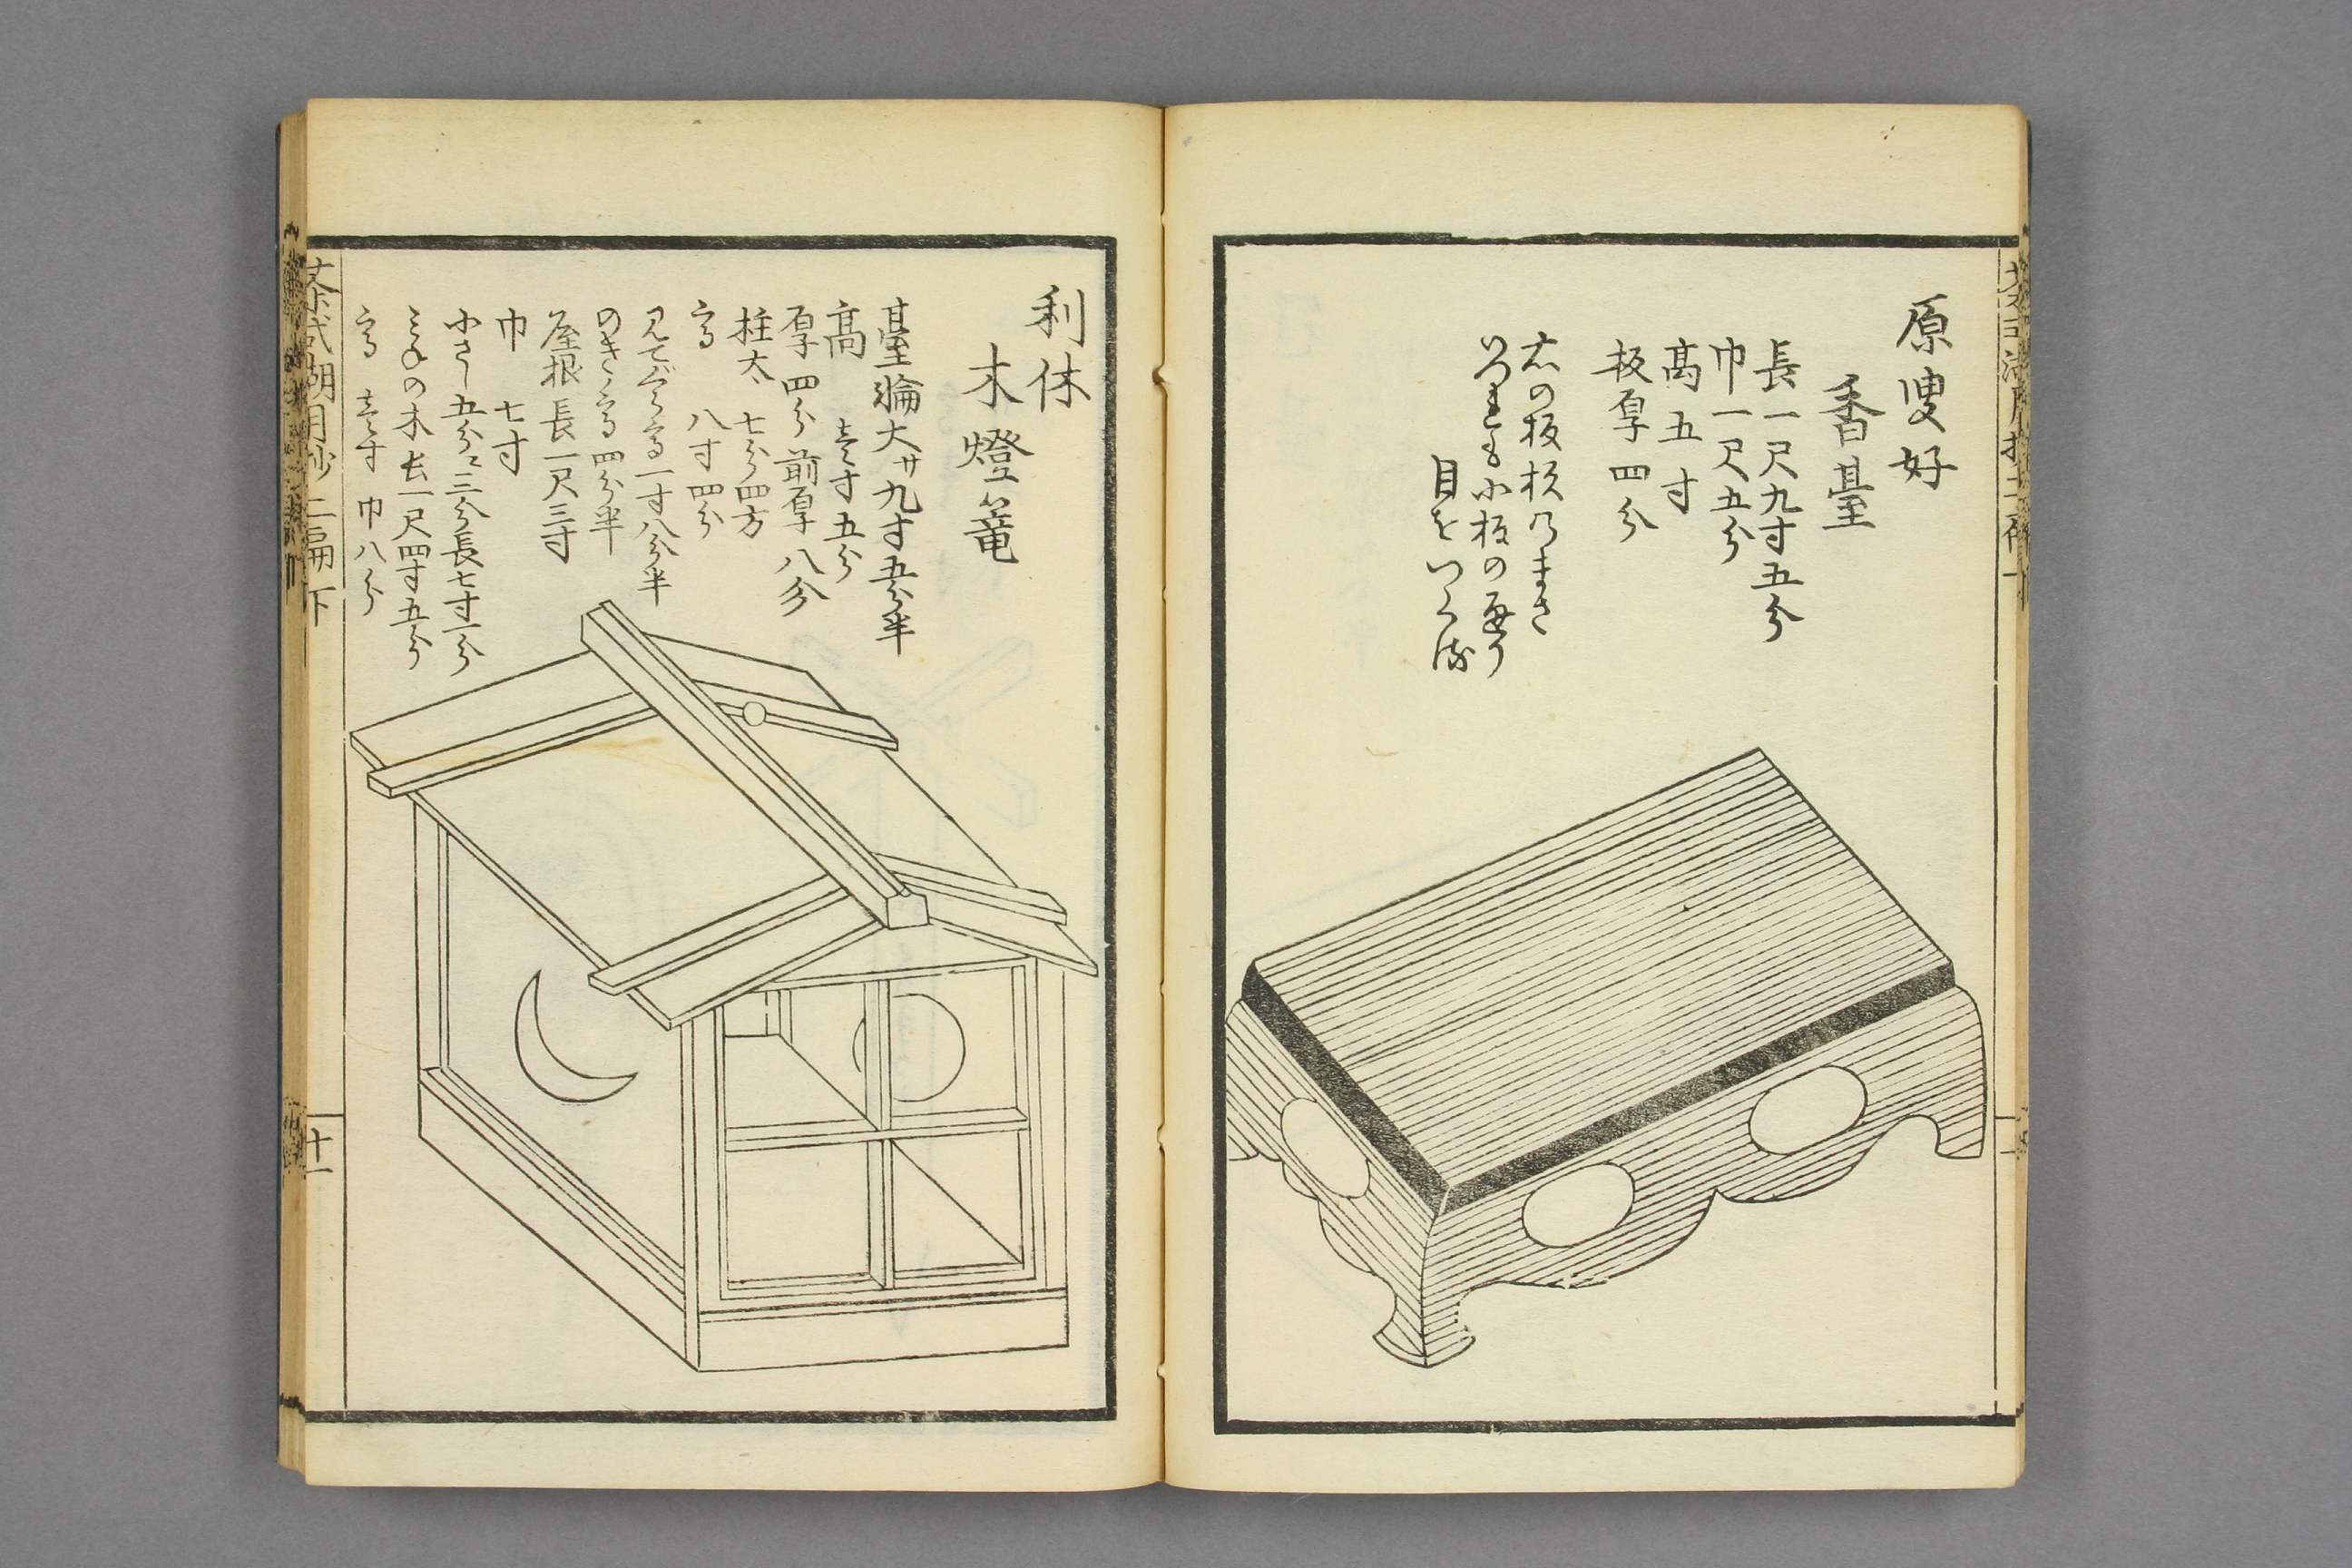 原叟好
香臺
長一尺九寸五分
巾一尺五分
高五寸
板厚四分
右の板杉乃まさ
いつれも小板の通り
目をつくる
利休
木燈篭
臺輪大サ九寸五分半
高 壱寸五分
厚四分前厚八分
柱太サ七分四方
高 八寸四分
高一寸八分半
のき高四分半
屋根長一尺三寸
巾 七寸
五分ニ三分長七寸一分
の木長一尺四寸五分
高 壱寸 巾八分
茶式湖月抄二編下
十一